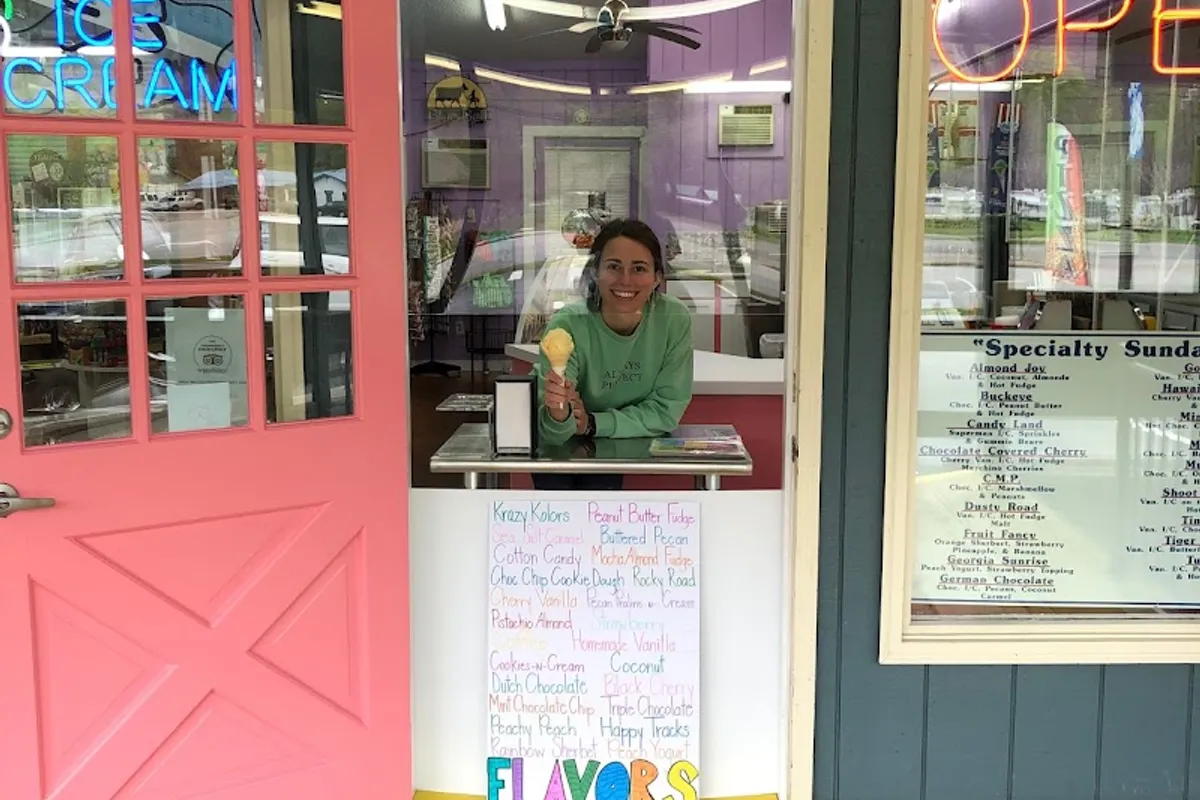 ICE
CREAM
OPE
Blue Bell
Krazy Kolors Peanut Butter Fudge
Sea Salt Caramel Buttered Pecan
Cotton Candy Mocha Almond Fudge
Choc Chip Cookie Dough Rocky Road
Cherry Vanilla Pecan Praline-n-Cream
Pistachio Almond Strawberry
Coffee Homemade Vanilla
Cookies-n-Cream Coconut
Dutch Chocolate Black Cherry
Mint Chocolate Chip Triple Chocolate
Peachy Peach Happy Tracks
Rainbow Sherbet Peach Yogurt
FLAVORS
"Specialty Sunda
Almond Joy
Van. I/C, Coconut, Almonds
& Hot Fudge
Buckeye
Choc. I/C, Peanut Butter
& Hot Fudge
Candy Land
Superman I/C, Sprinkles
& Gummie Bears
Chocolate Covered Cherry
Cherry Van. I/C, Hot Fudge
Merchino Cherries
C.M.P.
Choc. I/C, Marshmellow
& Peanuts
Dusty Road
Van. I/C, Hot Fudge
Malt
Fruit Fancy
Orange Sherbert, Strawberry
Pineapple, & Banana
Georgia Sunrise
Peach Yogurt, Strawberry Topping
German Chocolate
Choc. I/C, Pecans, Coconut
Carmel
Go
Hawai
Cherry Va
Shoot
Tiger
Van. I/C, Butter
Tu